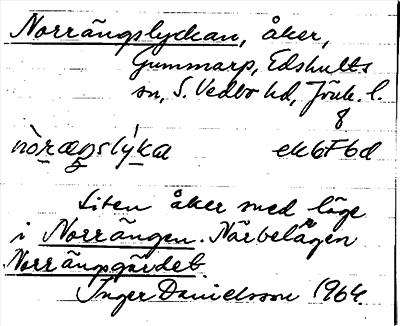 Norrängslyckan, åker,
Gummarp, Edshults
sn, S. Vedbo hd, Jönk. l.
8
nòræŋslỳka ek 6F6d
Liten åker med läge
i Norrängen. Närbelägen
Norrängsgärdet.
Inger Danielsson 1964.